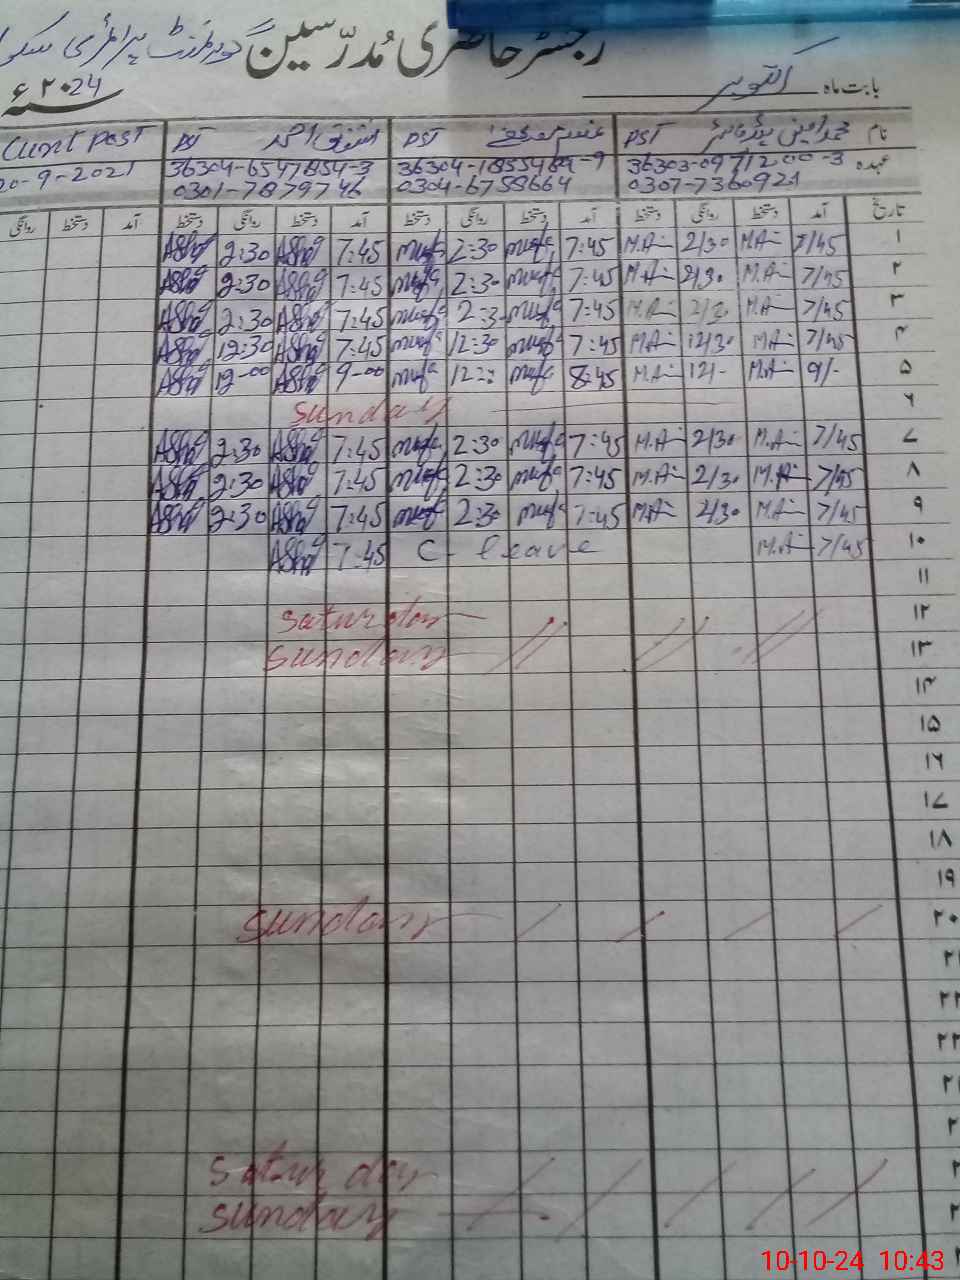 رجسٹر حاضری مُدرّسین گورنمنٹ پرائمری سکول
بابت ماہ اکتوبر ۲۰24ء
نام محمد امین PST PST اشفاق احمد PST Cunt Post
عہدہ 36303-0971200-3 36304-1855484-9 36304-6547854-3 00-9-2021
0307-7360921 0304-6758664 0301-7879746
تاریخ آمد دستخط روانگی دستخط آمد دستخط روانگی دستخط آمد دستخط روانگی دستخط آمد دستخط روانگی
۱ 7/45 M.Ai 2/30 M.Ai 7:45 mufa 2:30 mufa 7:45 Ashfaq 2:30 Ashfaq
۲ 7/45 M.Ai 2/30 M.Ai 7:45 mufa 2:30 mufa 7:45 Ashfaq 2:30 Ashfaq
۳ 7/45 M.Ai 2/30 M.Ai 7:45 mufa 2:3 mufa 7:45 Ashfaq 2:30 Ashfaq
۴ 7/45 M.Ai 12/30 M.Ai 7:45 mufa 12:30 mufa 7:45 Ashfaq 12:30 Ashfaq
۵ 9/- M.Ai 12/- M.Ai 8:45 mufa 12:- mufa 9-00 Ashfaq 12-00 Ashfaq
۶ Sunday
۷ 7/45 M.Ai 2/30 M.Ai 7:45 mufa 2:30 mufa 7:45 Ashfaq 2:30 Ashfaq
۸ 7/45 M.Ai 2/30 M.Ai 7:45 mufa 2:30 mufa 7:45 Ashfaq 2:30 Ashfaq
۹ 7/45 M.Ai 2/30 M.Ai 7:45 mufa 2:30 mufa 7:45 Ashfaq 2:30 Ashfaq
۱۰ 7/45 M.Ai C- leave 7:45 Ashfaq
۱۱
۱۲ Saturday
۱۳ Sunday
۱۴
۱۵
۱۶
۱۷
۱۸
۱۹
۲۰ Sunday
۲۱
۲۲
۲۳
۲
۲
۲ Saturday
۲ Sunday
10-10-24 10:43